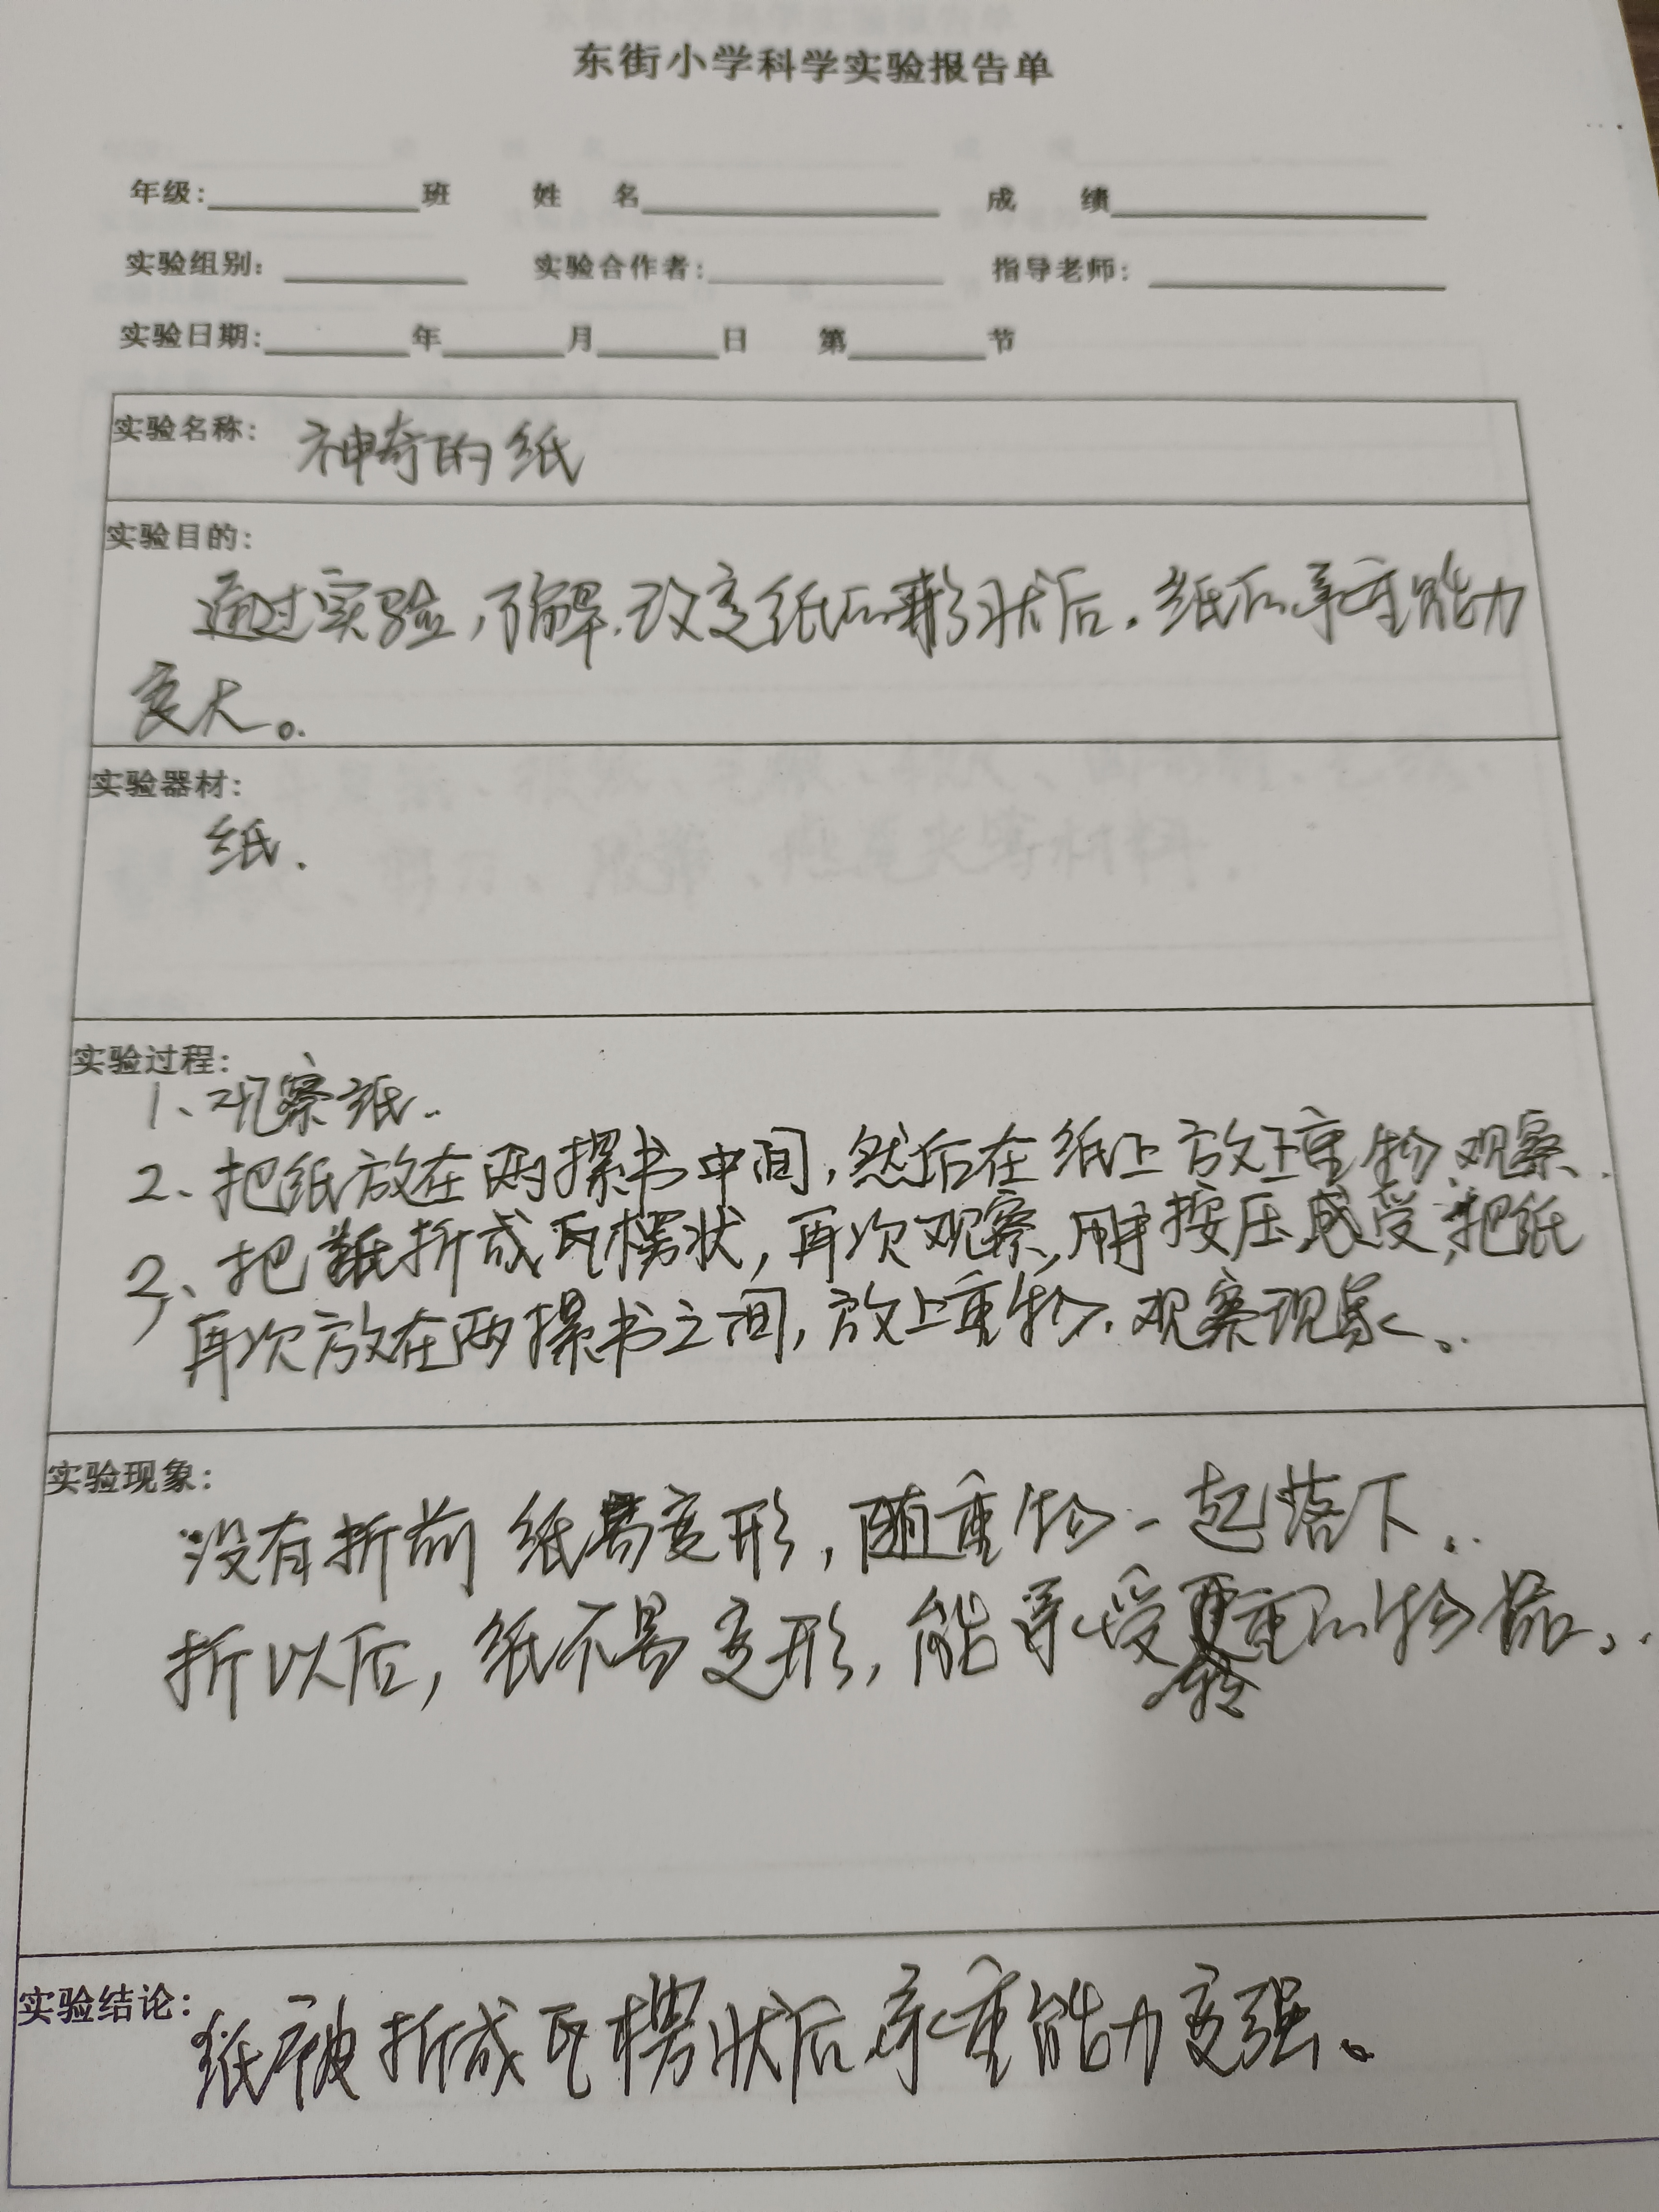 东街小学科学实验报告单
年级：班 姓 名 成 绩
实验组别： 实验合作者： 指导老师：
实验日期： 年 月 日 第 节
实验名称： 神奇的纸
实验目的：
通过实验，了解.改变纸的形状后.纸的承重能力
变大。
实验器材：
纸.
实验过程：
1、观察纸.
2、把纸放在两摞书中间，然后在纸上放上重物.观察.
3、把纸折成瓦楞状，再次观察，用手按压感受，把纸
再次放在两摞书之间，放上重物.观察现象.
实验现象：
没有折前纸易变形，随重物一起落下.
折以后，纸不易变形，能承受更重的物品.
实验结论： 纸被折成瓦楞状后承重能力变强。